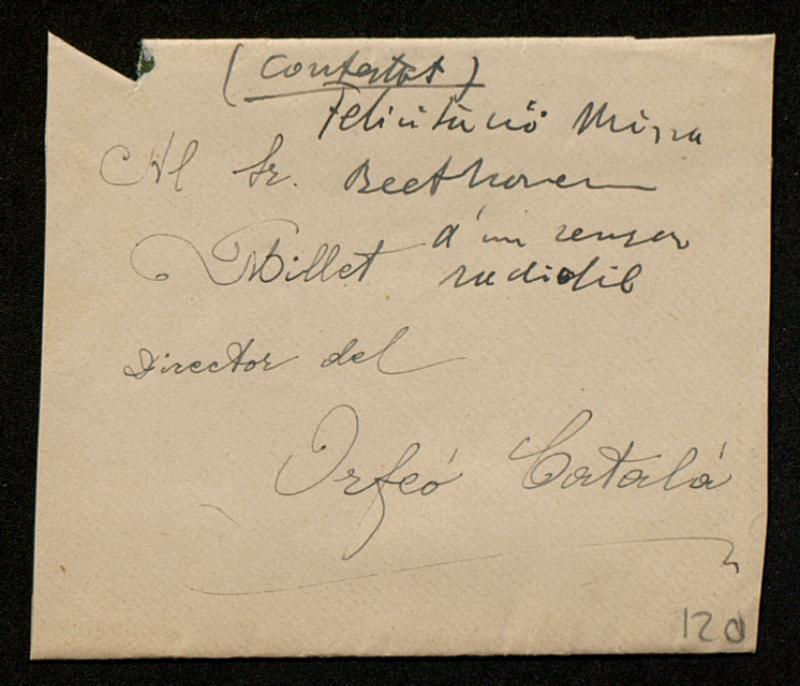 (Contestat)
Felicitació Missa
Al Sr. Beethoven
Millet d'un senyor
radiofil
Director del
Orfeó Catalá
120